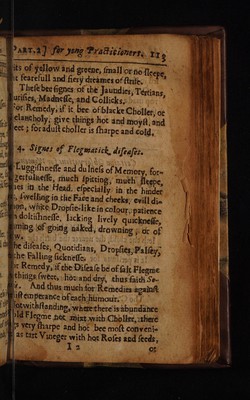 PART.2] for yong Practitioners. 113
its of yellow and greene, small or no sleepe,
fearefull and fiery dreames of strife.
These bee signes of the Jaundies, Tertians,
urisies, Madnesse, and Collicks.
or Remedy, if it bee of blacke Choller, or
elancholy, give things hot and moyst, and
eet; for adust choller is sharpe and cold.
4. Signes of Flegmatick diseases.
Luggishnesse and dulness of Memory, for-
getfulnesse, much spitting, much sleepe,
nes in the Head, especially in the hinder
, swelling in the Face and cheeks, evill di-
on, white Dropsie-like in colour, patience
doltishnesse, lacking lively quicknesse,
ming of going naked, drowning, or of
he diseases, Quotidians, Dropsies, Palsey,
the Falling sicknesse.
r Remedy, if the Disease be of salt Flegme
things sweet, hot and dry, thus saith
And thus much for Remedies against
istemperance of each humour.
otwithstanding, where there is abundance
old Flegme not mixt with Choller, there
s very sharpe and hot bee most conveni-
as tart Vineger with hot Roses and seeds,
I 2 or